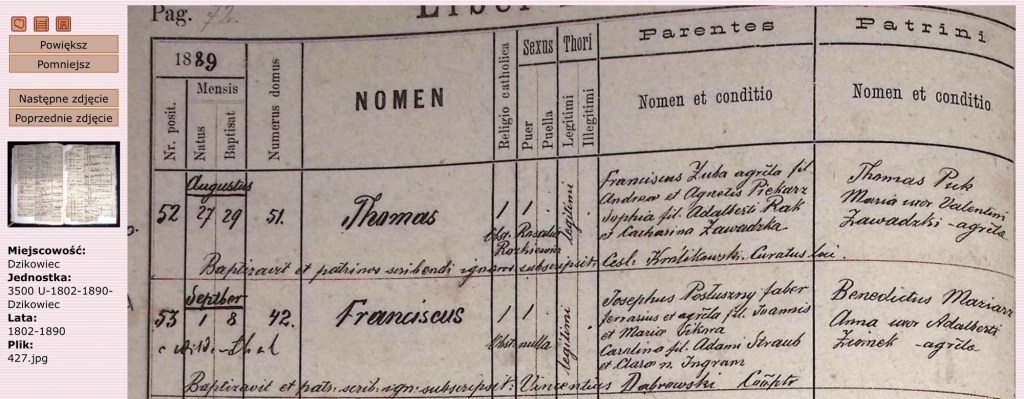 Powiększ
Pomniejsz
Następne zdjęcie
Poprzednie zdjęcie
Miejscowość:
Dzikowiec
Jednostka:
3500 U-1802-1890-
Dzikowiec
Lata:
1802-1890
Plik:
427.jpg
Pag. 72.
1889
Nr. posit.
Mensis
Natus
Baptisat
Numerus domus
NOMEN
Religio catholica
Sexus
Puer
Puella
Thori
Legitimi
Illegitimi
Parentes
Nomen et conditio
Patrini
Nomen et conditio
Augustus
52 27 29 51. Thomas 1 1 . legitimi .
Obst. Rosalia
Franciscus Zuba agrīla fil.
Andreae et Agnetis Piekarz
Sophia fil. Adalberti Rak
et Catharina Zawadzka
Thomas Puk
Maria uxor Valentini
Zawadzki - agrīla
Baptizavit et patrinos scribendi ignaros subscripsit: Cesl. Królikowski. Curatus loci.
Septber
53 1 8 42. Franciscus 1 1 . legitimi .
Obst. nulla
Josephus Posłuszny faber
ferrarius et agrīla fil. Joannis
et Maria
Carolina fil. Adami Straub
et Clara n. Ingram
Benedictus Maziarz
Anna uxor Adalberti
Ziomek - agrīla
Baptizavit et patr. scrib. ign. subscripsit: Vincentius Dąbrowski